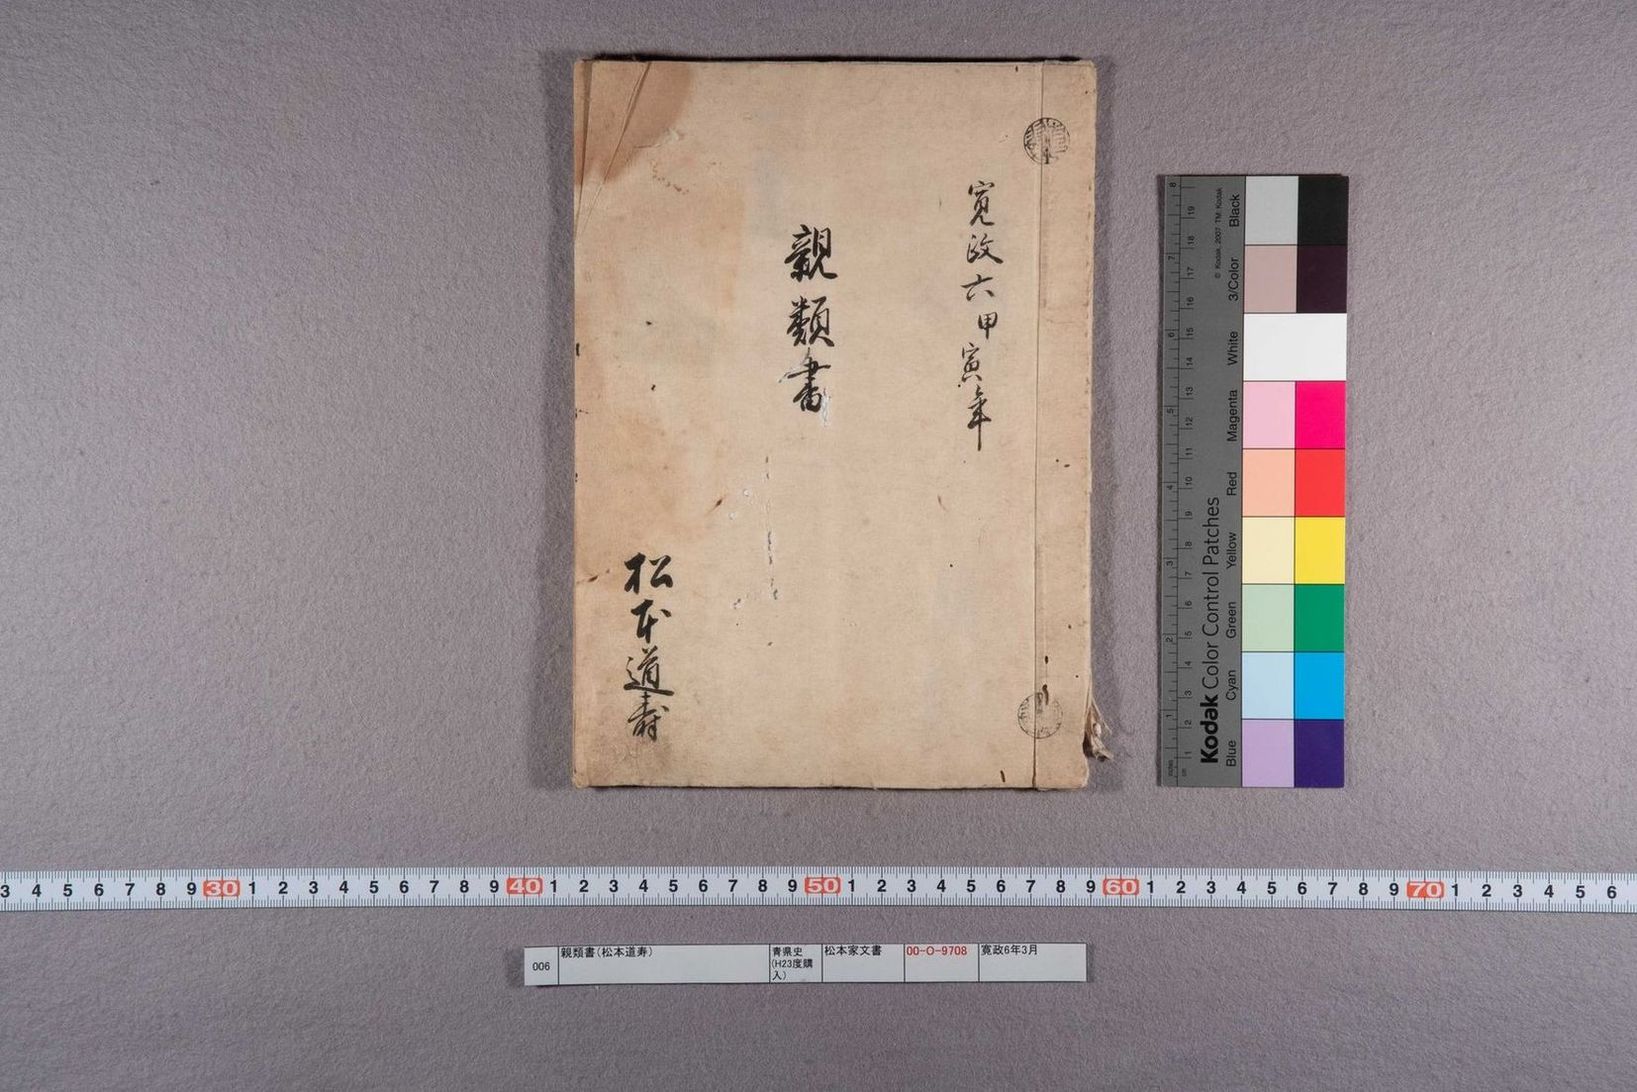 寛政六甲寅年
親類書
松本道寿
8 7 6 5 4 3 2 1
19 18 17 16 15 14 13 12 11 10 9 8 7 6 5 4 3 2 1
inches
cm
© Kodak, 2007 TM: Kodak
Kodak Color Control Patches
Black
3/Color
White
Magenta
Red
Yellow
Green
Cyan
Blue
3 4 5 6 7 8 9 30 1 2 3 4 5 6 7 8 9 40 1 2 3 4 5 6 7 8 9 50 1 2 3 4 5 6 7 8 9 60 1 2 3 4 5 6 7 8 9 70 1 2 3 4 5 6
006
親類書(松本道寿)
青県史
(H23度購
入)
松本家文書
00-O-9708
寛政6年3月